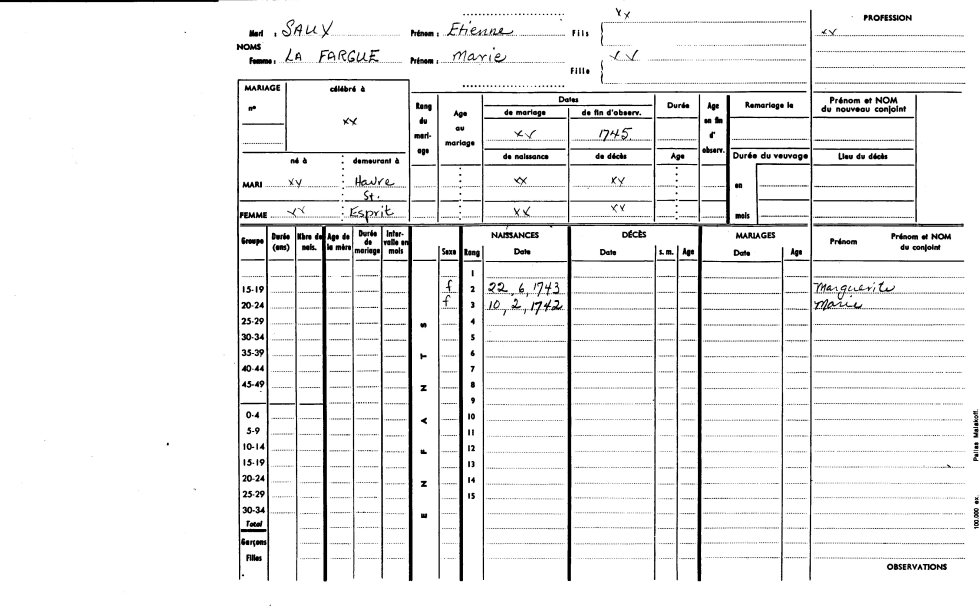 xy
PROFESSION
Mari : SAUX Prénom : Etienne Fils xx
NOMS
Femme : LA FARGUE Prénom : Marie Fille xx
MARIAGE célébré à
n° xx
Rang du mari-age
Age au mariage
Dates
de mariage de fin d'observ.
xx 1745
Durée
Age en fin d' observ.
Remariage le
Prénom et NOM du nouveau conjoint
né à demeurant à
de naissance de décès Age Durée du veuvage Lieu du décès
MARI xy Havre xx xy en
St.
FEMME xx Esprit xx xx mois
Groupe Durée (ans) Nbre de nais. Age de la mère Durée de mariage Inter-valle en mois Sexe Rang NAISSANCES Date DÉCÈS Date s. m. Age MARIAGES Date Age Prénom Prénom et NOM du conjoint
1
15-19 f 2 22, 6, 1743 Marguerite
20-24 f 3 10, 2, 1742 Marie
25-29 S 4
30-34 5
35-39 T 6
40-44 7
45-49 N 8
9
0-4 A 10
5-9 11
10-14 F 12
15-19 13
20-24 N 14
25-29 15
30-34 E
Total
Garçons
Filles
OBSERVATIONS
100,000 ex. Pallas Malakoff.